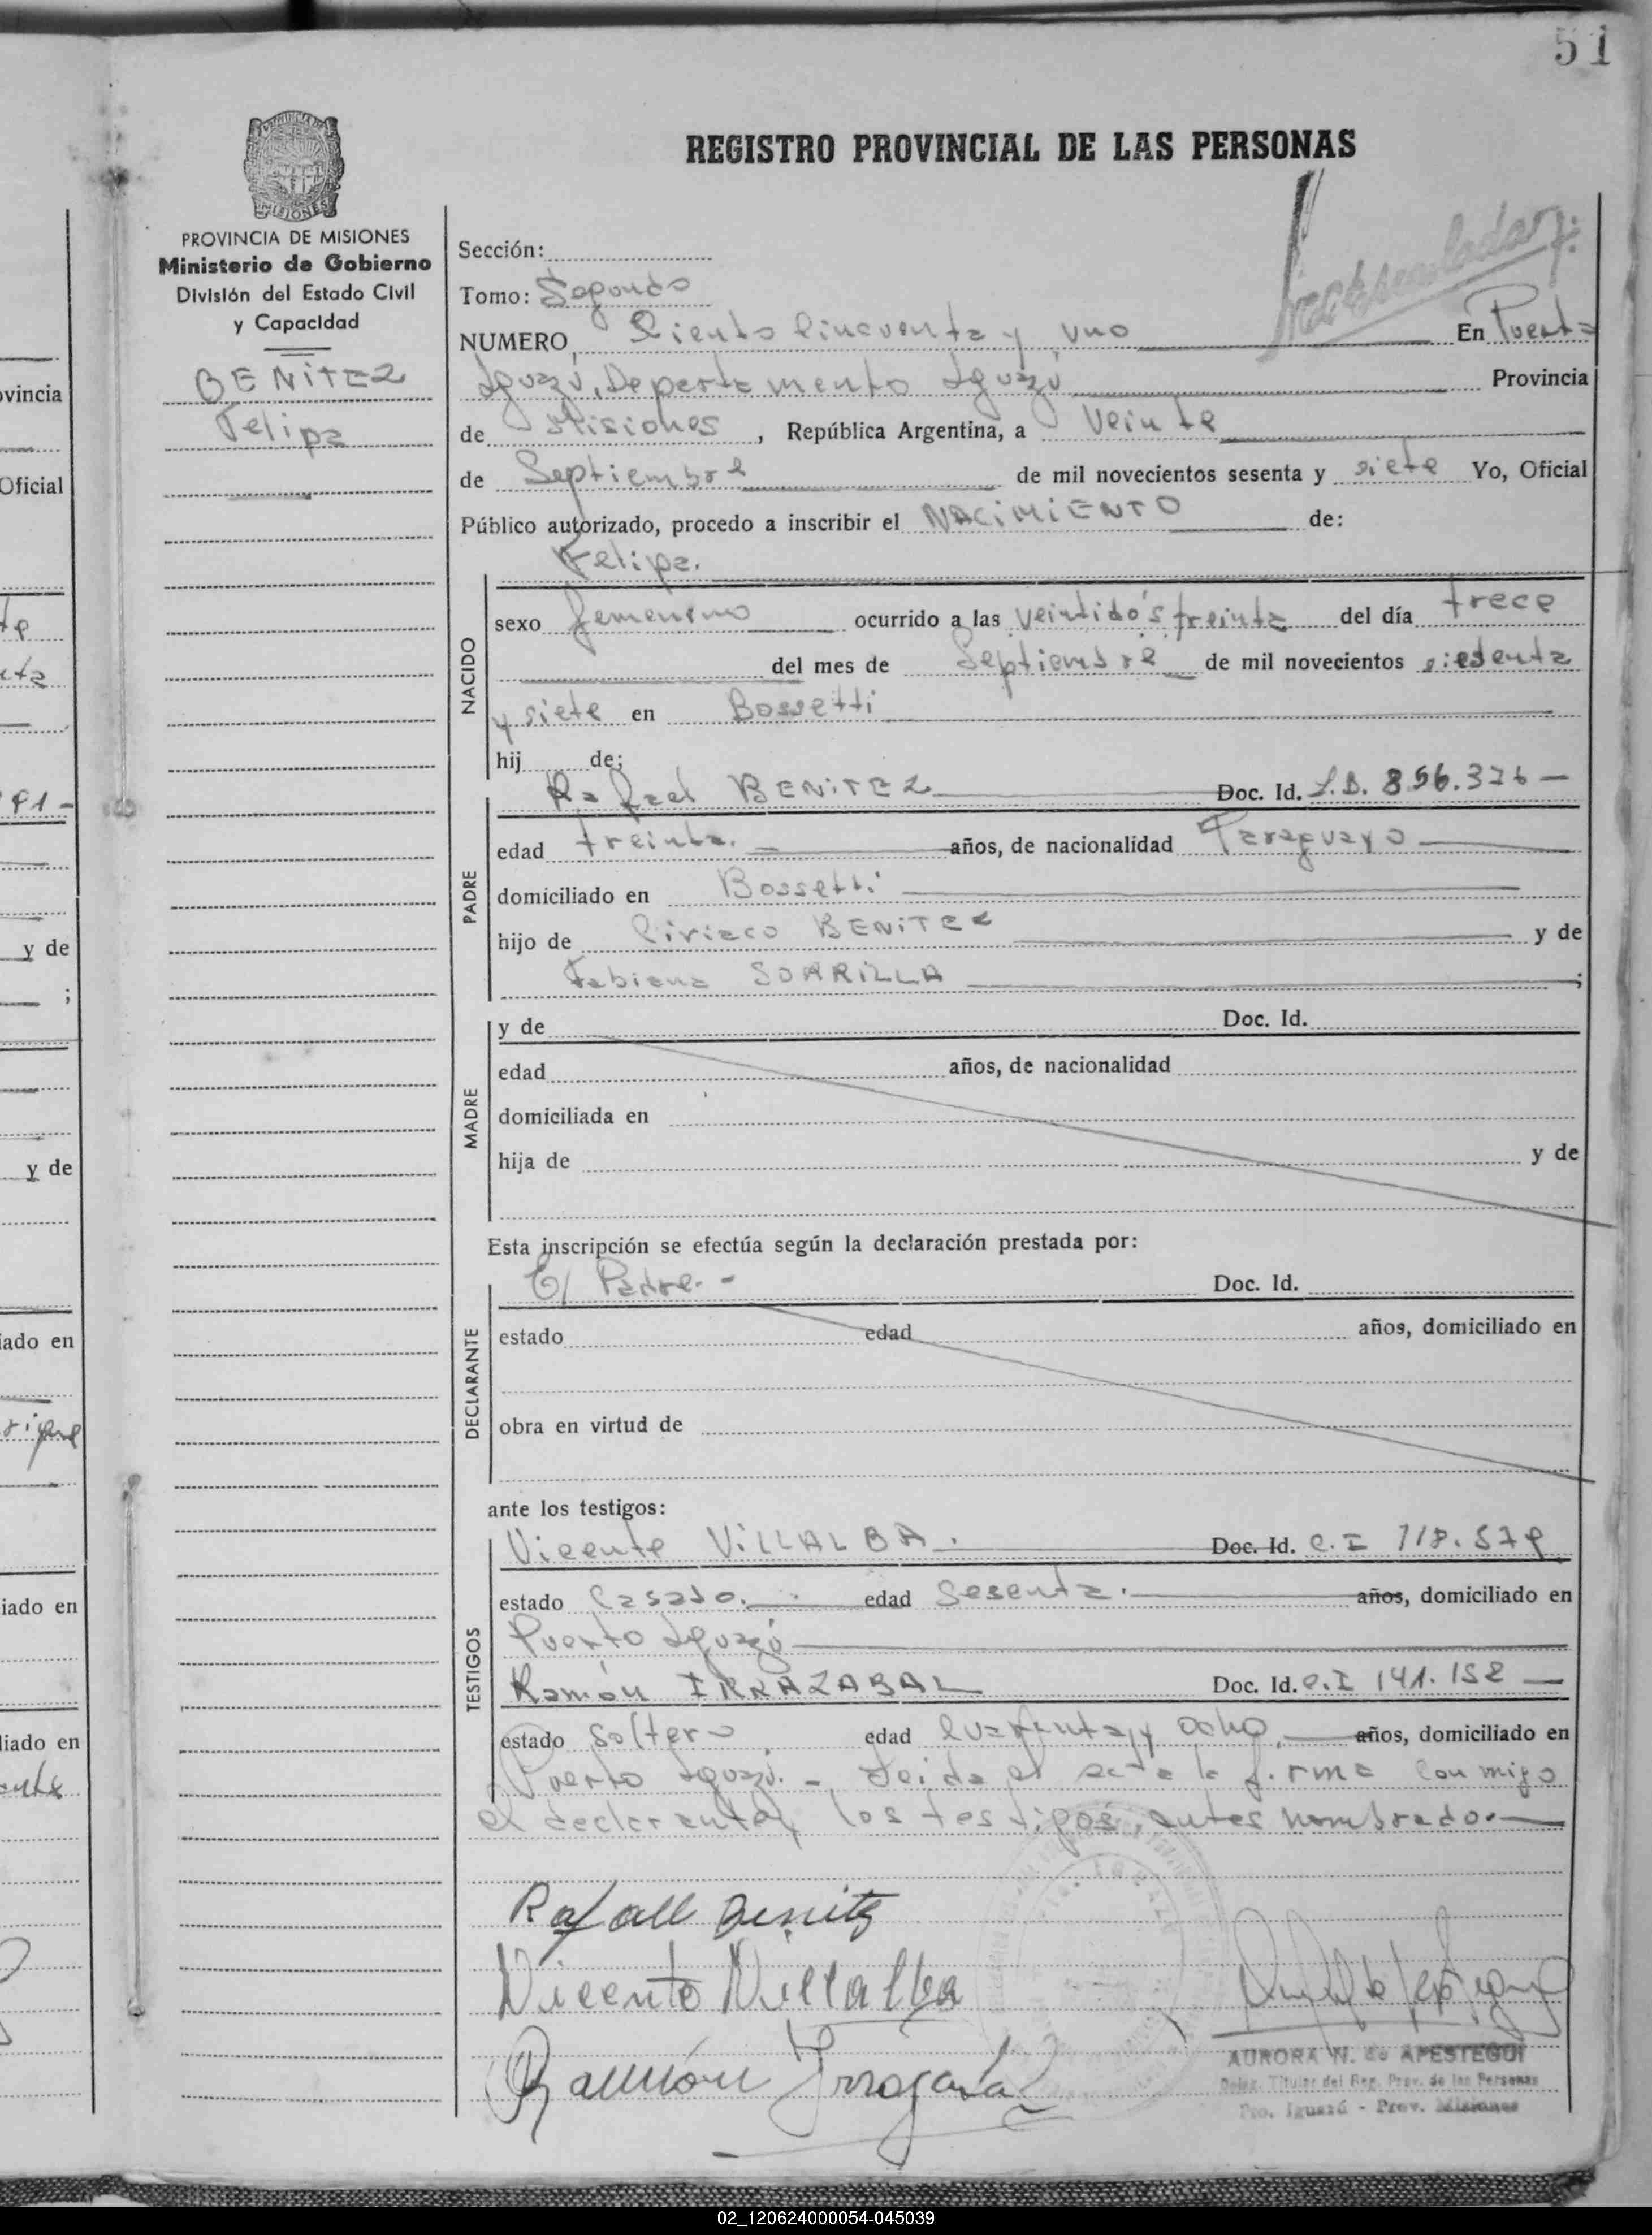 51
REGISTRO PROVINCIAL DE LAS PERSONAS
MISIONES
PROVINCIA DE MISIONES
Ministerio de Gobierno
División del Estado Civil
y Capacidad
BENITEZ
Felipa
Sección:
Tomo: Segundo
NUMERO Ciento Cincuenta y uno En Puerto
Iguazú, Departamento Iguazú Provincia
de Misiones, República Argentina, a Veinte
de Septiembre de mil novecientos sesenta y siete Yo, Oficial
Público autorizado, procedo a inscribir el NACIMIENTO de:
Felipa.
NACIDO
sexo femenino ocurrido a las veintidós treinta del día trece
del mes de Septiembre de mil novecientos sesenta
y siete en Bossetti
hij de;
PADRE
Rafael BENITEZ Doc. Id. 856.376
edad treinta. años, de nacionalidad Paraguayo
domiciliado en Bossetti
hijo de Ciriaco BENITEZ y de
Fabiana SORRILLA ;
MADRE
y de Doc. Id.
edad años, de nacionalidad
domiciliada en
hija de y de
Esta inscripción se efectúa según la declaración prestada por:
DECLARANTE
El Padre. - Doc. Id.
estado edad años, domiciliado en
obra en virtud de
ante los testigos:
TESTIGOS
Vicente VILLALBA. Doc. Id. C.I 118.579
estado Casado. edad Sesenta. años, domiciliado en
Puerto Iguazú
Ramón IRRAZABAL Doc. Id. C.I 141.152
estado Soltero edad Cuarenta y ocho años, domiciliado en
Puerto Iguazú. - Leida el acta la firma Conmigo
el declarante y los testigos, antes nombrado.
Rafaell Benitz
Vicente Villalba
Ramón
AURORA N. de APESTEGUI
Deleg. Titular del Reg. Prov. de las Personas
Pto. Iguazú - Prov. Misiones
vincia
Oficial
y de
;
y de
iado en
iado en
liado en
02_120624000054-045039